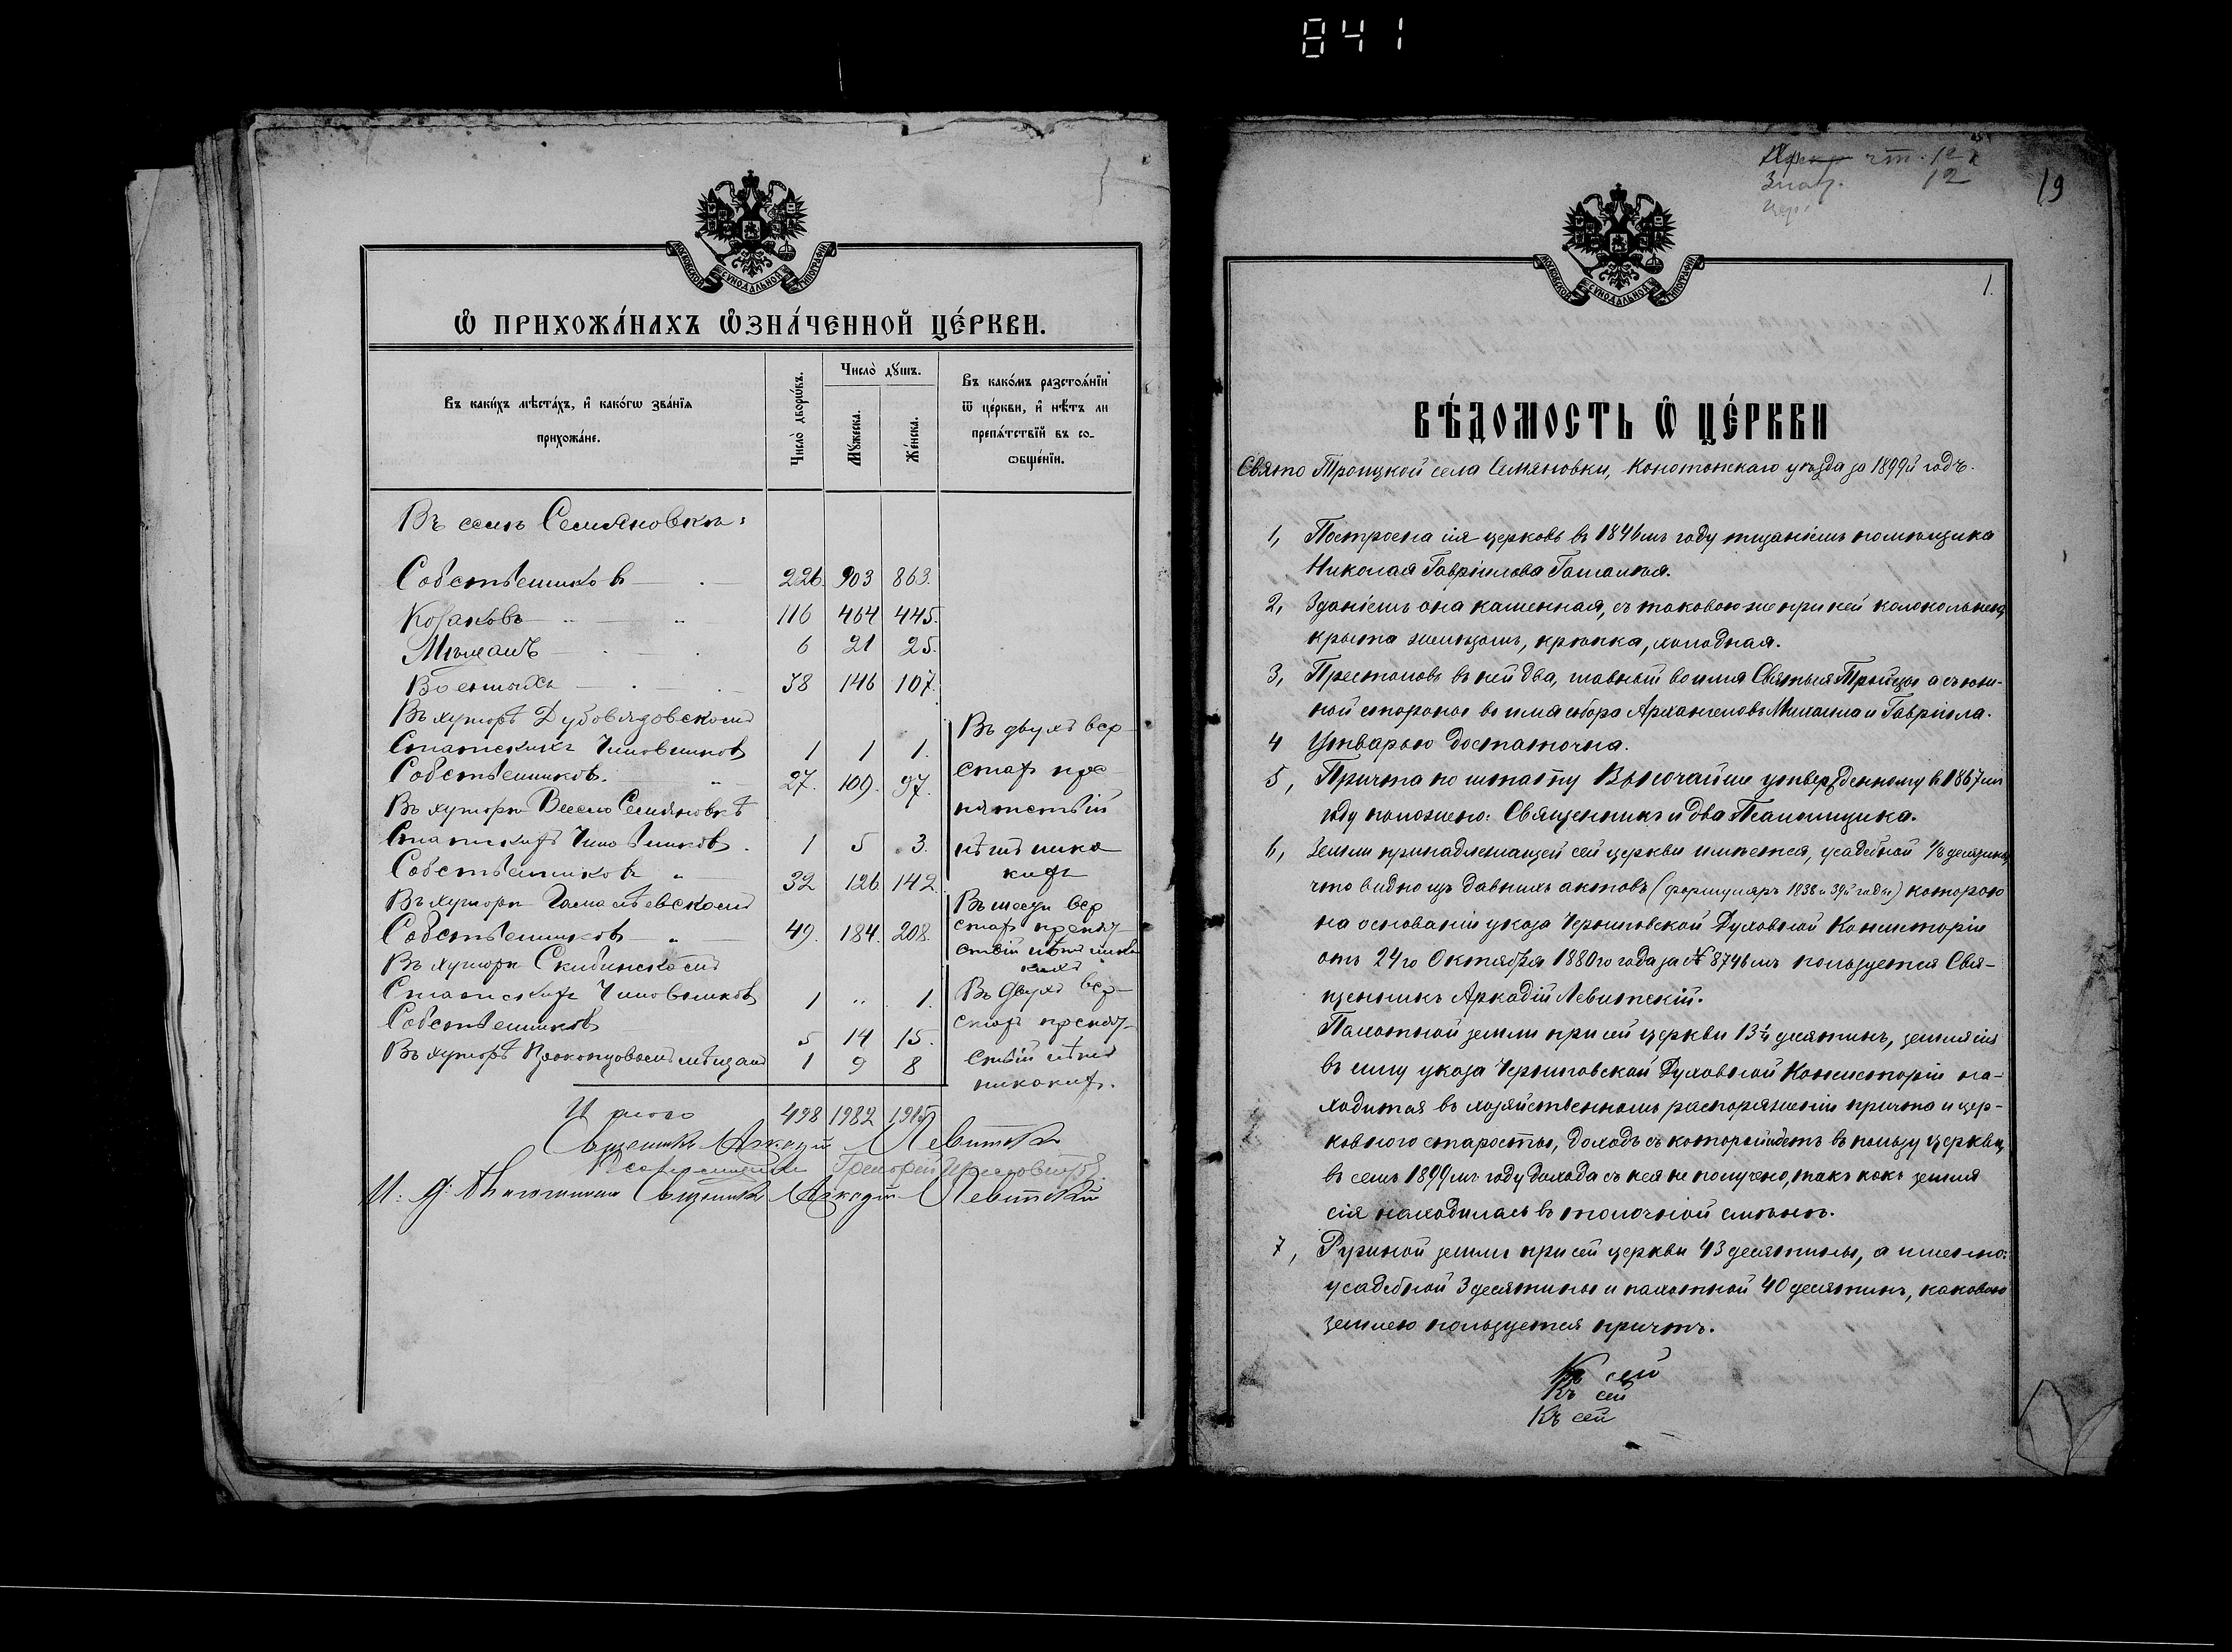 841
МОСКОВСКОЙ СѴНОДАЛЬНОЙ ТИПОГРАФІИ
Ѽ ПРИХОЖА́НАХЪ Ѡ҆ЗНА́ЧЕННОЙ ЦЕ́РКВИ.
Въ каки́хъ мѣста́хъ, и҆ како́гѡ зва́нїѧ
прихожа́не.
Число̀ дворѡ́въ.
Число̀ дꙋ́шъ.
Мꙋ́жеска.
Же́нска.
Въ како́мъ разстоѧ́нїи
ѿ це́ркви, и҆ нѣ́тъ ли
препѧ́тствїй въ со-
ѻбще́нїи.
Въ селѣ Семяновкѣ:
Собственниковъ 226. 903 863.
Козаковъ 116 464 445.
Мѣщанъ 6 21 25.
Военныхъ 38 146 107.
Въ хуторѣ Дубовядовскомъ
Статскихъ Чиновниковъ 1 1 1.
Собственниковъ. 27. 109. 97.
Въ хуторѣ Весело Семяновкѣ
Статскихъ Чиновниковъ. 1 5 3.
Собственниковъ 32 126 142
Въ двухъ вер-
стахъ пре-
пятствій
нѣтъ ника
кихъ
Въ хуторѣ Гамалѣевскомъ
Собственниковъ 49. 184. 208.
Въ шести вер
стахъ препят-
ствій нѣтъ ника
кихъ
Въ хуторѣ Скибинскомъ
Статскихъ Чиновниковъ 1 .. 1.
Собственниковъ 5 14 15.
Въ хуторѣ Прокопцовомъ мѣщанъ 1 9 8
Въ двухъ вер-
стахъ препят-
ствій нѣтъ
никакихъ.
Итого 498 1982 1915
Священникъ Аркадій Левитскій
Псаломщикъ Григорій
И. д. Благочиннаго Священникъ Аркадій Левитскій
12
12
19
МОСКОВСКОЙ СѴНОДАЛЬНОЙ ТИПОГРАФІИ
1.
ВѢ́ДОМОСТЬ Ѽ ЦЕ́РКВИ
Свято Троицкой села Семяновки, Конотопскаго уѣзда за 1899й годъ.
1, Построена сія церковь въ 1846мъ году тщаніемъ помѣщика
Николая Гавріилова Гамалѣя.
2, Зданіемъ она каменная, съ таковою же при ней колокольнею,
крыта желѣзомъ, крѣпка, холодная.
3, Престоловъ въ ней два, главный во имя Святыя Тройцы а съ юж-
ной стороны во имя собора Архангеловъ Михаила и Гавріила.
4 Утварью достаточна.
5, Причта по штату Высочайше утвержденному въ 1867мъ
году положено: Священникъ и два Псаломщика.
6, Земли принадлежащей сей церкви имѣется, усадебной ⅛ десятины,
что видно изъ давнихъ актовъ (формуляръ 1838 и 39й годы) которою
на основаніи указа Черниговской Духовной Консисторіи
отъ 24го Октября 1880го года за № 8746мъ пользуется Свя-
щенникъ Аркадій Левитскій.
Пахотной земли при сей церкви 13½ десятинъ, земля сія
въ силу указа Черниговской Духовной Консисторіи на-
ходится въ хозяйственномъ распоряженіи причта и цер-
ковнаго старосты, доходъ съ которой идетъ въ пользу церкви,
въ семъ 1899мъ году дохода съ нея не получено, такъ какъ земля
сія находилась въ толочной смѣнѣ.
7, Ружной земли при сей церкви 43 десятины, а именно:
усадебной 3 десятины и пахотной 40 десятинъ, каковою
землею пользуется причтъ.
Къ сей
Къ сей
Къ сей